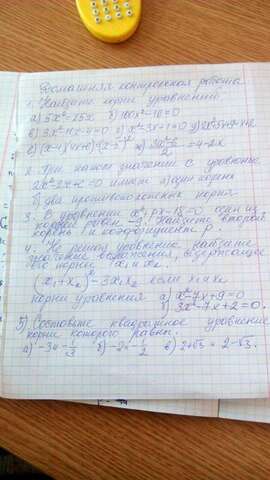 Домашняя контрольная работа
1. Найдите корни уравнений
а) 5x²=25x б) 100x²-16=0
в) 3x²-11x-4=0 г) x²-3x+1=0
2. При каком значении с уравнение
2x²-2x+c=0 имеет а) один корень
б) два противоположных корня.
3. В уравнении x²+px-18=0 один из
корней равен -9. Найдите второй
корень и коэффициент p.
4. Не решая уравнение, найдите
значение выражения, содержащее
его корни x₁ и x₂
(x₁+x₂)²-3x₁x₂ если x₁ и x₂
корни уравнения а) x²-7x+9=0
б) 3x²-7x+2=0.
5) Составьте квадратное уравнение
корни которого равны.
в) 2+√3 и 2-√3.